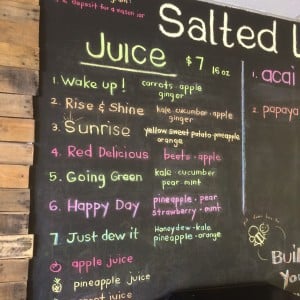 & deposit for a mason jar
Salted
JUICE $7 16 oz
1. Wake up! carrots · apple
ginger
2. Rise & Shine kale · cucumber · apple
ginger
3. Sunrise yellow sweet potato · pineapple
orange
4. Red Delicious beets · apple
5. Going Green kale · cucumber
pear · mint
6. Happy Day pineapple · pear
strawberry · mint
7. Just dew it Honeydew · kale
pineapple · orange
apple juice
pineapple juice
juice
1. acai
2. papaya
Buil
You